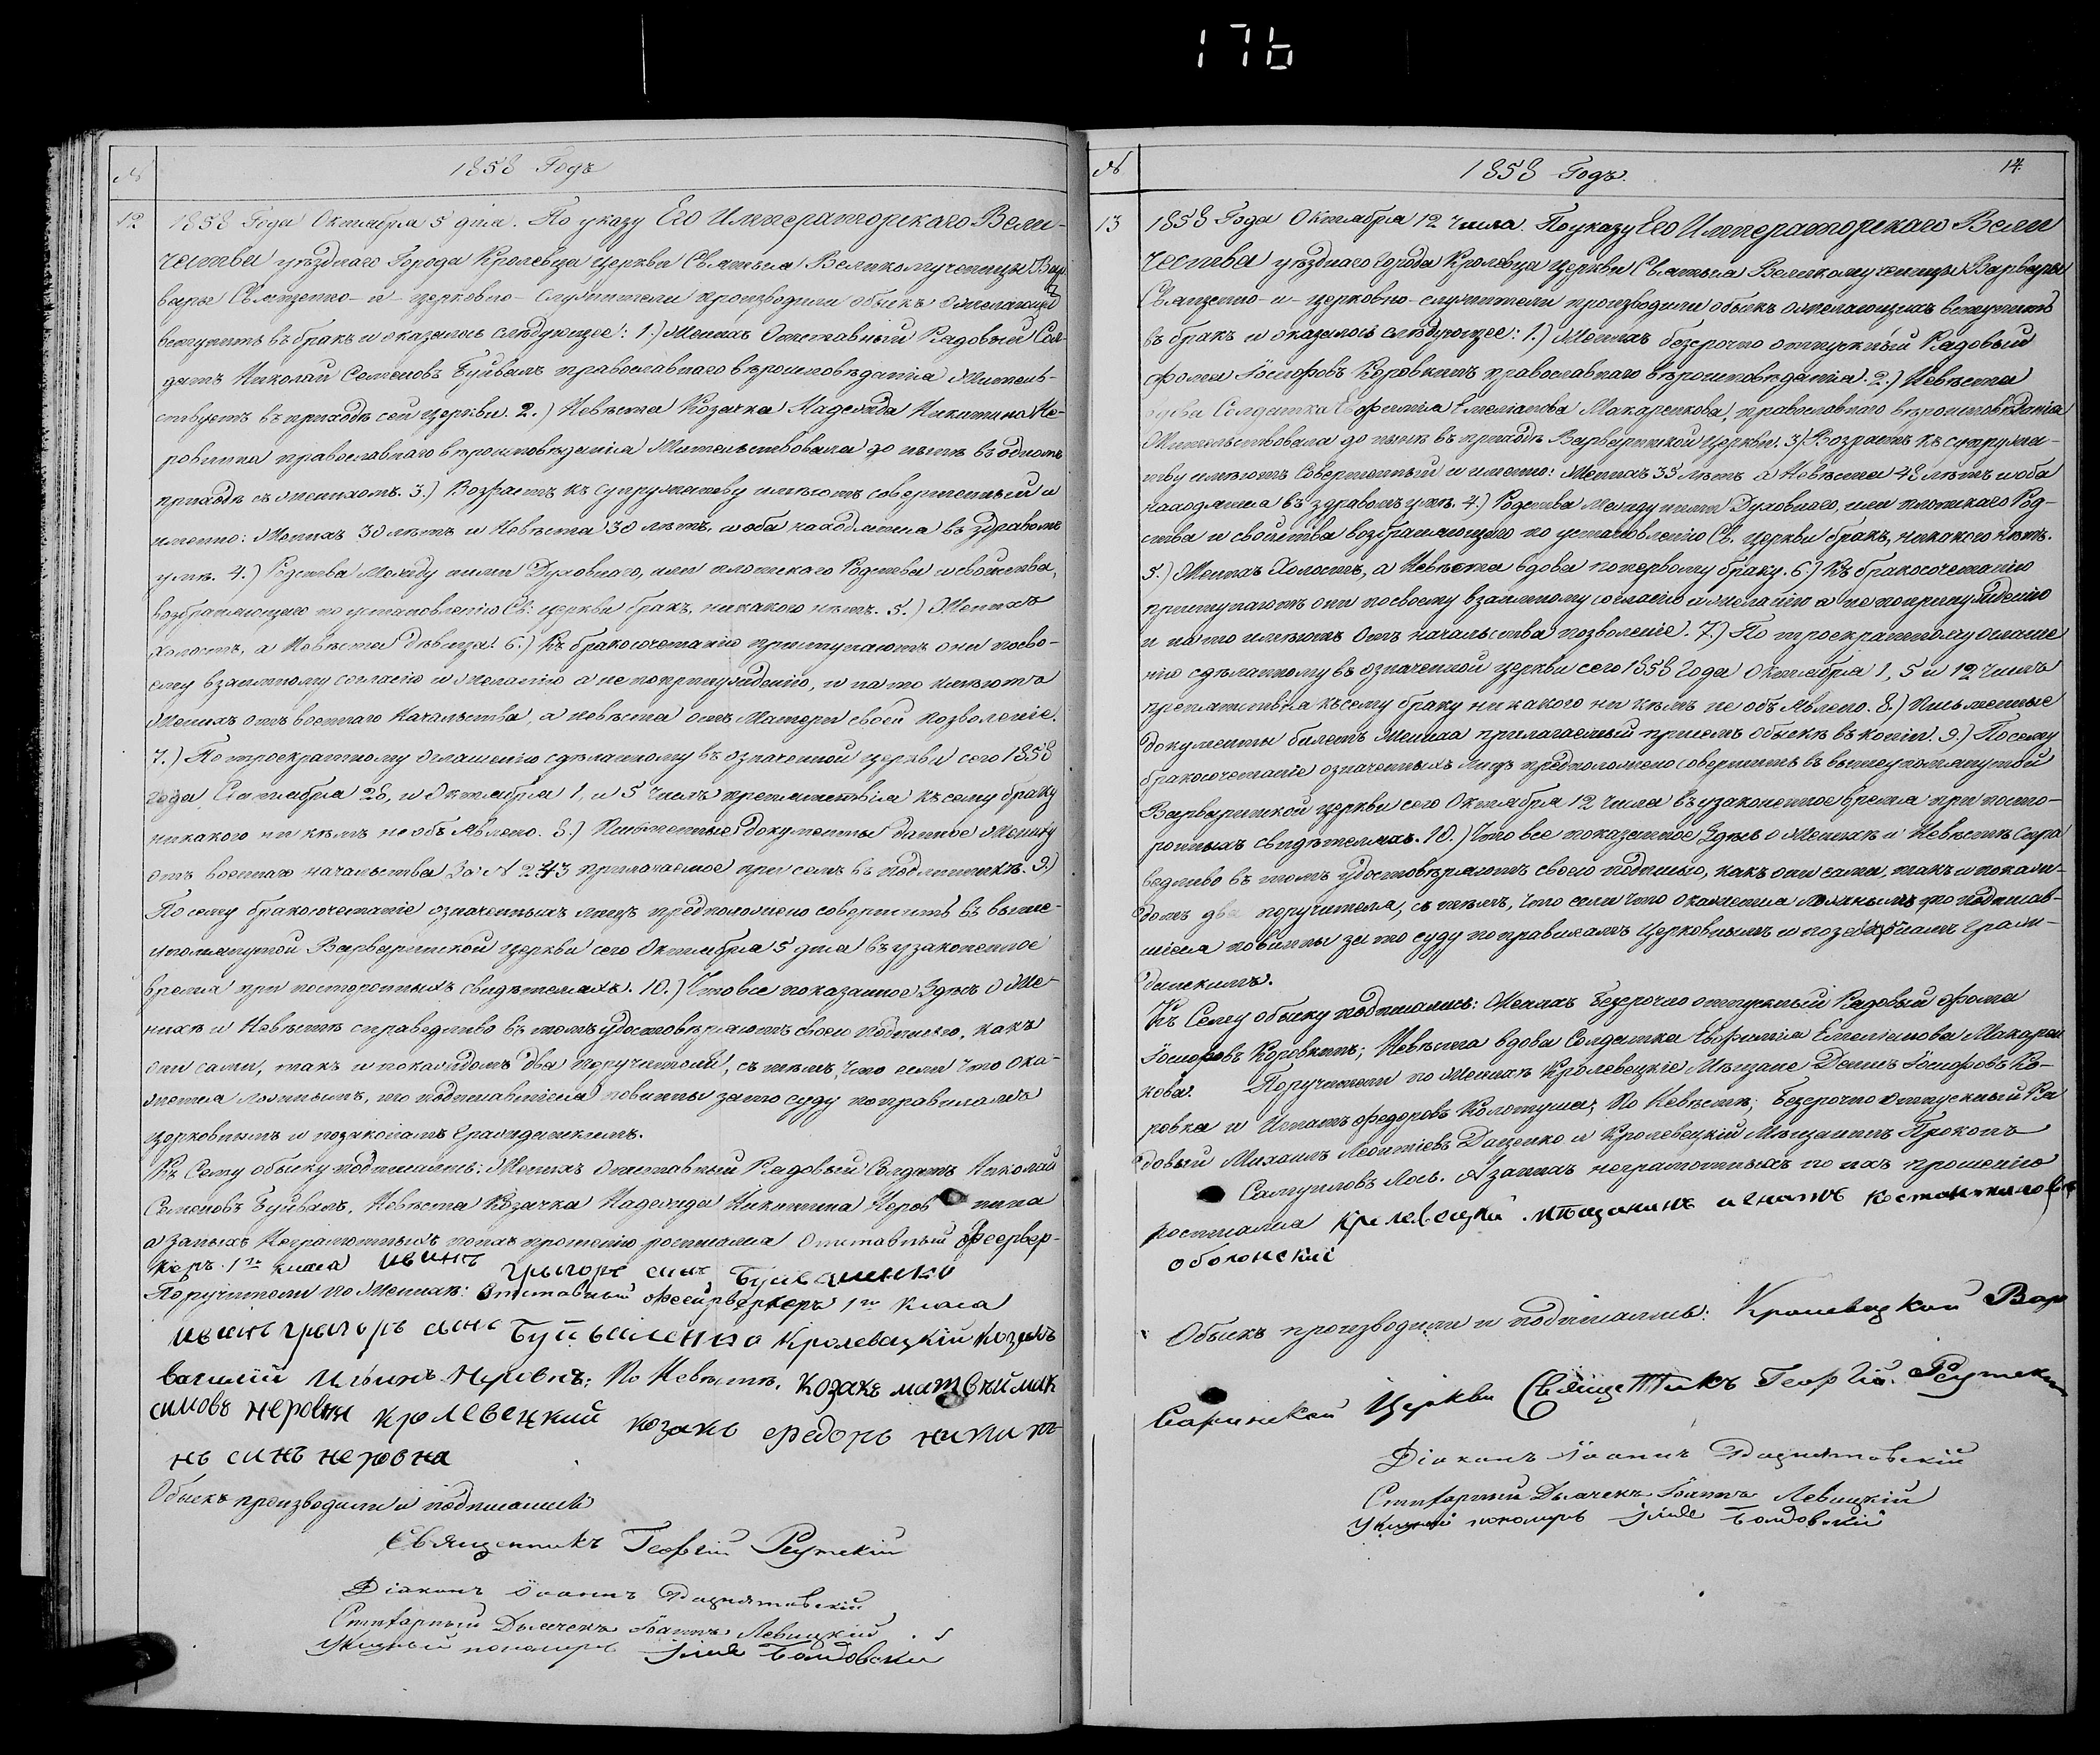 176
№
1858 Годъ
12
1858 Года Октября 5 дня. По указу Его Императорскаго Вели-
чества уѣзднаго Города Кролевца церкви Святыя Великомученицы Вар-
вары Священно-и-церковно-служители производили обыскъ о желающихъ
вступить въ бракъ и оказалось слѣдующее: 1.) Женихъ Отставный Рядовый Сол-
датъ Николай Семеновъ Буйвалъ православнаго вѣроисповѣданія Житель-
ствуетъ въ приходѣ сей церкви. 2.) Невѣста Козачка Надежда Никитина Не-
ровнина православнаго вѣроисповѣданія Жительствовала до нынѣ въ одномъ
приходѣ съ женихомъ. 3.) Возрастъ къ супружеству имѣютъ совершенный и
именно: Женихъ 30 лѣтъ и Невѣста 30 лѣтъ, и оба находятся въ здравомъ
умѣ. 4.) Родства между ними Духовнаго, или плотскаго Родства и свойства,
возбраняющаго по установленію Св: церкви бракъ, никакого нѣтъ. 5.) Женихъ
Холостъ, а Невѣста дѣвица. 6.) Къ бракосочетанію приступаютъ они по сво-
ему взаимному согласію и желанію а не по принужденію, и на то имѣютъ
Женихъ отъ военнаго Начальства, а невѣста отъ Матери своей позволеніе.
7.) По троекратному оглашенію сдѣланному въ означенной церкви сего 1858
года Сентября 28, и Октября 1, и 5 числъ препятствія къ сему браку
никакого ни кѣмъ не объявлено. 8.) Письменные документы данное Жениху
отъ военнаго начальства За № 243 прилагаемое при семъ въ подлинникѣ. 9.)
По сему бракосочетаніе означенныхъ лицъ предположено совершить въ выше-
упомянутой Варваринской церкви сего Октября 5 дня въ узаконенное
время при постороннихъ свидѣтеляхъ. 10.) Что все показанное Здѣсь о Же-
нихѣ и Невѣстѣ справедливо въ томъ удостовѣряютъ своею подписью, какъ
они сами, такъ и по каждомъ два поручителя, съ тѣмъ, что если что ока-
жется ложнымъ, то подписавшіеся повинны за то суду по правиламъ
церковнымъ и по законамъ Гражданскимъ.
Къ Сему обыску подписались: Женихъ отставный Рядовый Солдатъ Николай
Семеновъ Буйвалъ, Невѣста Козачка Надежда Никитина Неров нина
а за ныхъ Неграмотныхъ по ихъ прошенію росписался Отставный Феервер-
керъ 1го класа
Поручители по Женихѣ: Отставный Феерверкеръ 1го Класа
Кролевецкій Козакъ
По Невѣстѣ, козакъ матвѣй мак
симовъ неровня кролевецкий козакъ федоръ
нъ синъ неровна
Обыскъ производили и подписали
Священникъ Георгій Рутскій
Діаконъ Іоаннъ
Дьячекъ Іоаннъ Левицкій
пономарь Илія
№
1858 Годъ.
14.
13
1858 Года Октября 12 Числа. По указу Его Императорскаго Вели
чества уѣзднаго города Кролевца церкви Святыя Великомученицы Варвары
Священно-и-церковно-служители производили обыскъ о желающихъ вступить
въ бракъ и оказалось слѣдующее: 1.) Женихъ безсрочно отпускный Рядовый
Фома Іосифовъ Коровкинъ православнаго вѣроисповѣданія. 2.) Невѣста
вдова Солдатка Евфимія Емеліанова Макаренкова, православнаго вѣроисповѣданія
Жительствовала до нынѣ въ приходѣ Варваринской церкви. 3.) Возрастъ къ супруже-
ству имѣютъ совершенный и именно: Женихъ 35 лѣтъ а Невѣста 48 лѣтъ и оба
находятся въ здравомъ умѣ. 4.) Родства между ними Духовнаго, или плотскаго Род-
ства и свойства возбраняющаго по установленію Св. церкви бракъ, никакого нѣтъ.
5.) Женихъ Холостъ, а Невѣста вдова по первому браку. 6.) Къ бракосочетанію
приступаютъ они по своему взаимному согласію и желанію а не по принужденію
и на то имѣютъ Отъ начальства позволеніе. 7.) По троекратному оглаше
нію сдѣланному въ означенной церкви сего 1858 Года Октября 1, 5 и 12 Числъ
препятствія къ сему браку никакого ни кѣмъ не объявлено. 8.) Письменные
документы билетъ Жениха прилагаемый при семъ обыскѣ въ копіи. 9.) По сему
бракосочетаніе означенныхъ лицъ предположено совершить въ вышеупомянутой
Варваринской церкви сего Октября 12 числа въ узаконенное время при посто-
роннихъ свидѣтеляхъ. 10.) Что все показанное Здѣсь о Женихѣ и Невѣстѣ спра
ведливо въ томъ удостовѣряютъ своею подписью, какъ они сами, такъ и по каж-
домъ два поручителя, съ тѣмъ, что если что окажется ложнымъ то подписав-
шіеся повинны за то суду по правиламъ Церковнымъ и по законамъ Граж-
данскимъ.
Къ Сему обыску подписались: Женихъ Безсрочно отпускный Рядовый Фома
Іосифовъ Коровкинъ; Невѣста вдова Солдатка Евфимія Емеліанова Макарен
кова. Поручители по Женихѣ Кролевецкіе Мѣщане Денис Іосифовъ Ко-
ровка и Игнатъ Федоровъ Колотуша; По Невѣстѣ; Безсрочно отпускный Ря
довый Михаилъ Леонтіевъ Даценко и Кролевецкій Мѣщанинъ Прокопъ
Самуиловъ Лось. А за нихъ неграмотныхъ по ихъ прошенію
росписался кролевецкій мѣщанинъ игнатъ
оболонскій
Обыскъ производили и подписались: Кролевецкой Вар
варинской Церкви Священникъ Георгій Рутскій
Діаконъ Іоаннъ
Дьячекъ Іоаннъ Левицкій
пономарь Илія